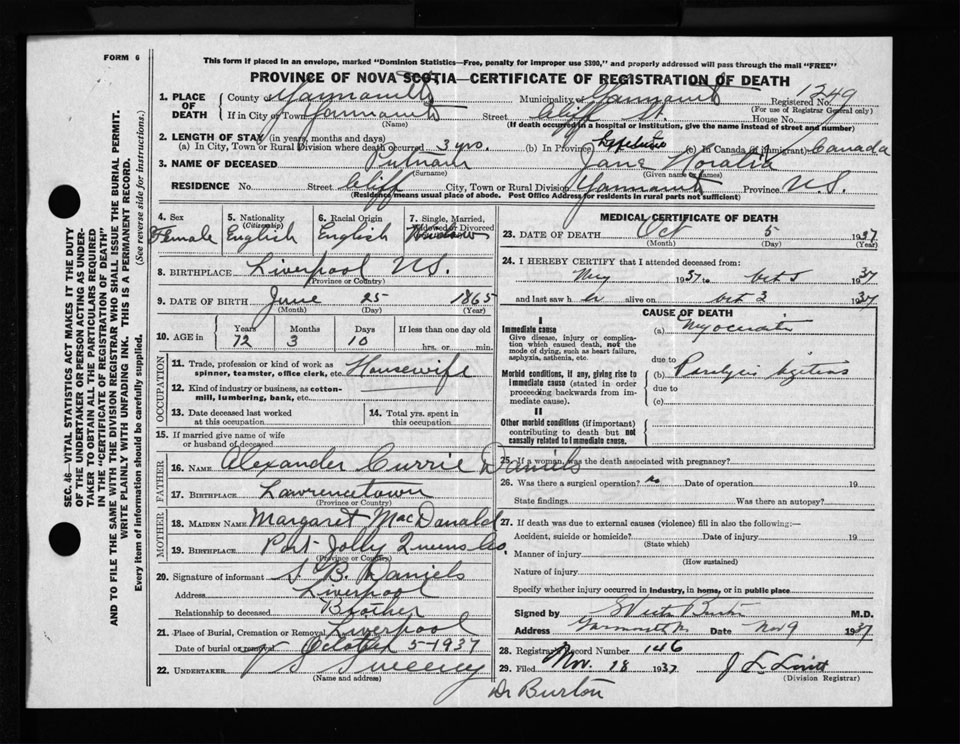 FORM 6
This form if placed in an envelope, marked "Dominion Statistics—Free, penalty for improper use $300," and properly addressed will pass through the mail "FREE"
PROVINCE OF NOVA SCOTIA—CERTIFICATE OF REGISTRATION OF DEATH
1. PLACE OF DEATH
County of Yarmouth Municipality of Yarmouth Registered No. 1249
(For use of Registrar General only)
If in City or Town Yarmouth Street Cliff St. House No.
(Name) (If death occurred in a hospital or institution, give the name instead of street and number)
2. LENGTH OF STAY (in years, months and days)
(a) In City, Town or Rural Division where death occurred 3 yrs. (b) In Province Lifetime (c) In Canada (if immigrant) Canada
3. NAME OF DECEASED Putnam Jane
(Surname) (Given name or names)
RESIDENCE No. Street Cliff City, Town or Rural Division Yarmouth Province N.S.
(Residence means usual place of abode. Post Office Address for residents in rural parts not sufficient)
4. Sex
Female
5. Nationality (Citizenship)
English
6. Racial Origin
English
7. Single, Married, Widowed or Divorced
Widow
8. BIRTHPLACE Liverpool N.S.
(Province or Country)
9. DATE OF BIRTH June 25 1865
(Month) (Day) (Year)
10. AGE in Years Months Days If less than one day old
72 3 10 hrs. or min.
OCCUPATION
11. Trade, profession or kind of work as spinner, teamster, office clerk, etc. Housewife
12. Kind of industry or business, as cotton-mill, lumbering, bank, etc.
13. Date deceased last worked at this occupation
14. Total yrs. spent in this occupation
15. If married give name of wife or husband of deceased
FATHER
16. NAME Alexander Currie Daniels
17. BIRTHPLACE Lawrencetown
(Province or Country)
MOTHER
18. MAIDEN NAME Margaret MacDonald
19. BIRTHPLACE Port Jolly Queens Co.
(Province or Country)
20. Signature of informant S. B. Daniels
Address Liverpool
Relationship to deceased Brother
21. Place of Burial, Cremation or Removal Liverpool
Date of burial or removal October 5-1937
22. UNDERTAKER V S Sweeney
(Name and address)
MEDICAL CERTIFICATE OF DEATH
23. DATE OF DEATH Oct 5 1937
(Month) (Day) (Year)
24. I HEREBY CERTIFY that I attended deceased from:
1937 to Oct 5 1937
and last saw h er alive on Oct 3 1937
CAUSE OF DEATH
I
Immediate cause
Give disease, injury or complication which caused death, not the mode of dying, such as heart failure, asphyxia, asthenia, etc.
(a) Myocarditis
due to
Morbid conditions, if any, giving rise to immediate cause (stated in order proceeding backwards from immediate cause).
(b) Paralysis Agitans
due to
(c)
II
Other morbid conditions (if important) contributing to death but not causally related to immediate cause.
25. If a woman, was the death associated with pregnancy?
26. Was there a surgical operation? no Date of operation 19
State findings Was there an autopsy?
27. If death was due to external causes (violence) fill in also the following:—
Accident, suicide or homicide? Date of injury 19
(State which)
Manner of injury
(How sustained)
Nature of injury
Specify whether injury occurred in industry, in home, or in public place
Signed by Burton M.D.
Address Yarmouth Date Nov 9 1937
28. Registrar's Record Number 146
29. Filed Nov. 18 1937 J L Lovitt
(Division Registrar)
Dr Burton
SEC. 46—VITAL STATISTICS ACT MAKES IT THE DUTY
OF THE UNDERTAKER OR PERSON ACTING AS UNDER-
TAKER TO OBTAIN ALL THE PARTICULARS REQUIRED
IN THE "CERTIFICATE OF REGISTRATION OF DEATH"
AND TO FILE THE SAME WITH THE DIVISION REGISTRAR WHO SHALL ISSUE THE BURIAL PERMIT.
WRITE PLAINLY WITH UNFADING INK. THIS IS A PERMANENT RECORD.
Every item of information should be carefully supplied. (See reverse side for instructions.)